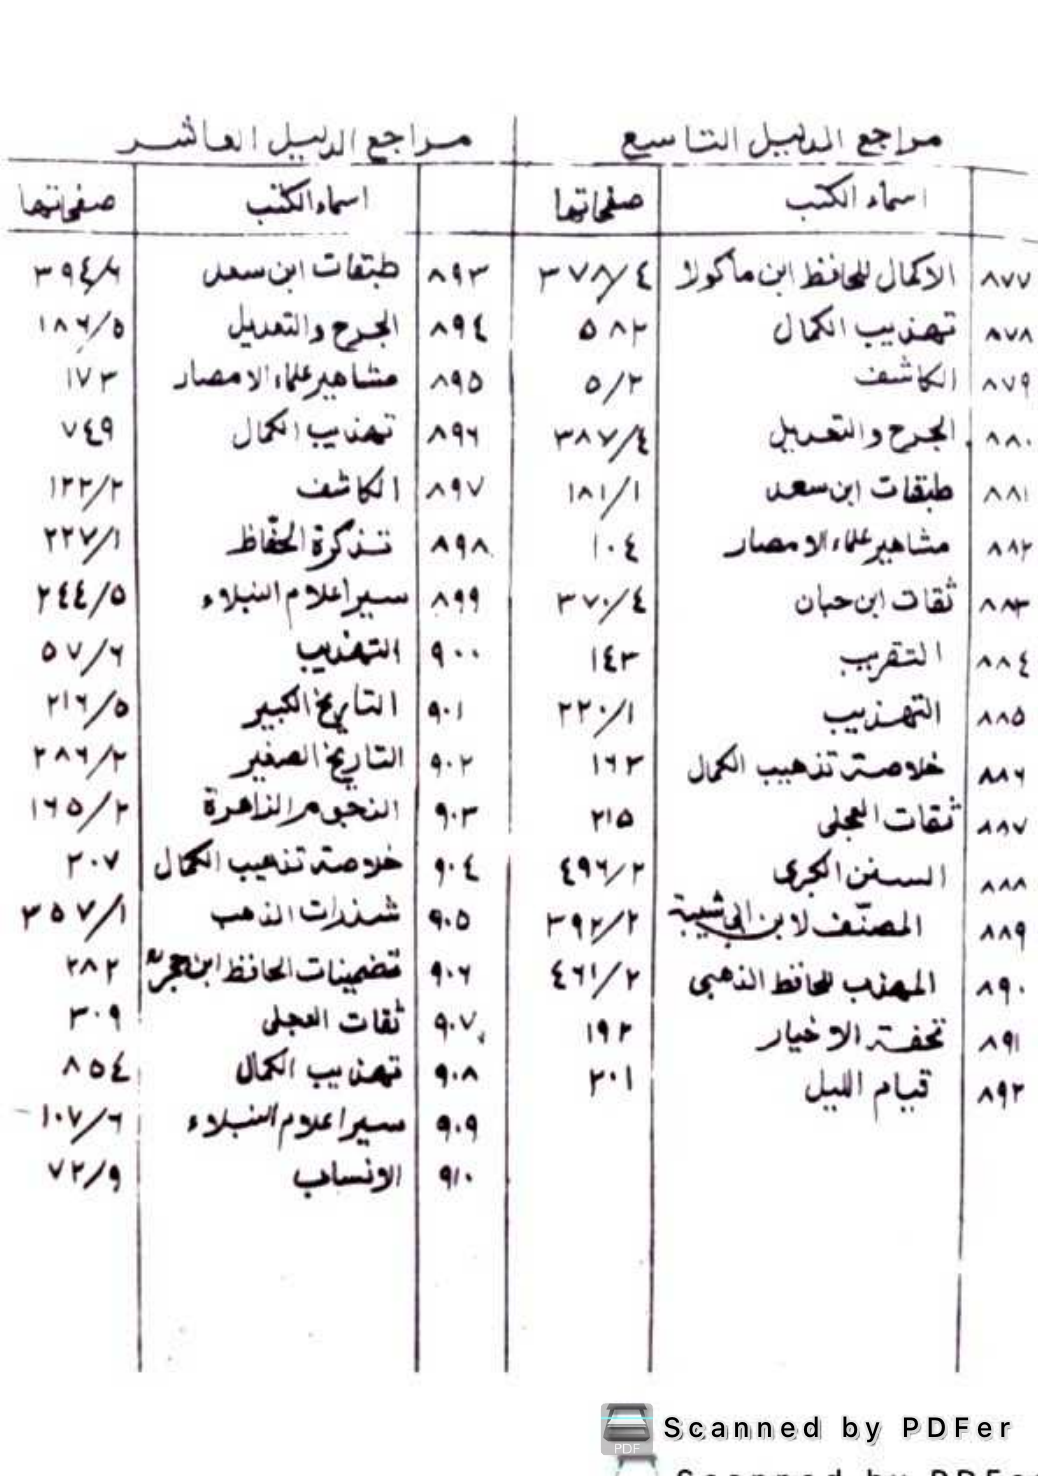 مراجع الدليل التاسع
اسماء الكتب صفحاتها
٨٧٧ الاكمال للحافظ ابن ماكولا ٣٧٨/٤
٨٧٨ تهذيب الكمال ٥٨٢
٨٧٩ الكاشف ٥/٢
٨٨٠ الجرح والتعديل ٣٨٧/٤
٨٨١ طبقات ابن سعد ١٨١/١
٨٨٢ مشاهير علماء الامصار ١٠٤
٨٨٣ ثقات ابن حبان ٣٧٠/٤
٨٨٤ التقريب ١٤٣
٨٨٥ التهذيب ٢٢٠/١
٨٨٦ خلاصة تذهيب الكمال ١٦٢
٨٨٧ ثقات العجلى ٢١٥
٨٨٨ السنن الكبرى ٤٩٦/٢
٨٨٩ المصنّف لابن ابى شيبة ٣٩٢/٢
٨٩٠ المهذب للحافظ الذهبى ٤٦١/٢
٨٩١ تحفة الاخيار ١٩٢
٨٩٢ قيام الليل ٢٠١
مراجع الدليل العاشر
اسماء الكتب صفحاتها
٨٩٣ طبقات ابن سعد ٣٩٤/٦
٨٩٤ الجرح والتعديل ١٨٦/٥
٨٩٥ مشاهير علماء الامصار ١٧٣
٨٩٦ تهذيب الكمال ٧٤٩
٨٩٧ الكاشف ١٢٢/٢
٨٩٨ تذكرة الحفّاظ ٢٢٧/١
٨٩٩ سير اعلام النبلاء ٢٤٤/٥
٩٠٠ التهذيب ٥٧/٦
٩٠١ التاريخ الكبير ٢١٦/٥
٩٠٢ التاريخ الصغير ٢٨٦/٢
٩٠٣ النجوم الزاهرة ١٦٥/٢
٩٠٤ خلاصة تذهيب الكمال ٢٠٧
٩٠٥ شذرات الذهب ٣٥٧/١
٩٠٦ تضمينات الحافظ ابن حجر ٢٨٢
٩٠٧ ثقات العجلى ٣٠٩
٩٠٨ تهذيب الكمال ٨٥٤
٩٠٩ سير اعلام النبلاء ١٠٧/٦
٩١٠ الانساب ٧٢/٩
PDF
Scanned by PDFer